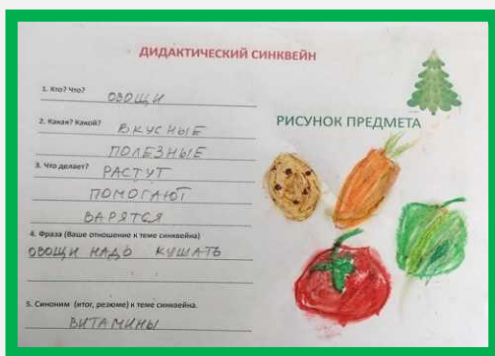 ДИДАКТИЧЕСКИЙ СИНКВЕЙН
1. Кто? Что?
ОВОЩИ
2. Какая? Какой?
ВКУСНЫЕ
ПОЛЕЗНЫЕ
3. Что делает?
РАСТУТ
ПОМОГАЮТ
ВАРЯТСЯ
4. Фраза (Ваше отношение к теме синквейна)
ОВОЩИ НАДО КУШАТЬ
5. Синоним (итог, резюме) к теме синквейна.
ВИТАМИНЫ
РИСУНОК ПРЕДМЕТА